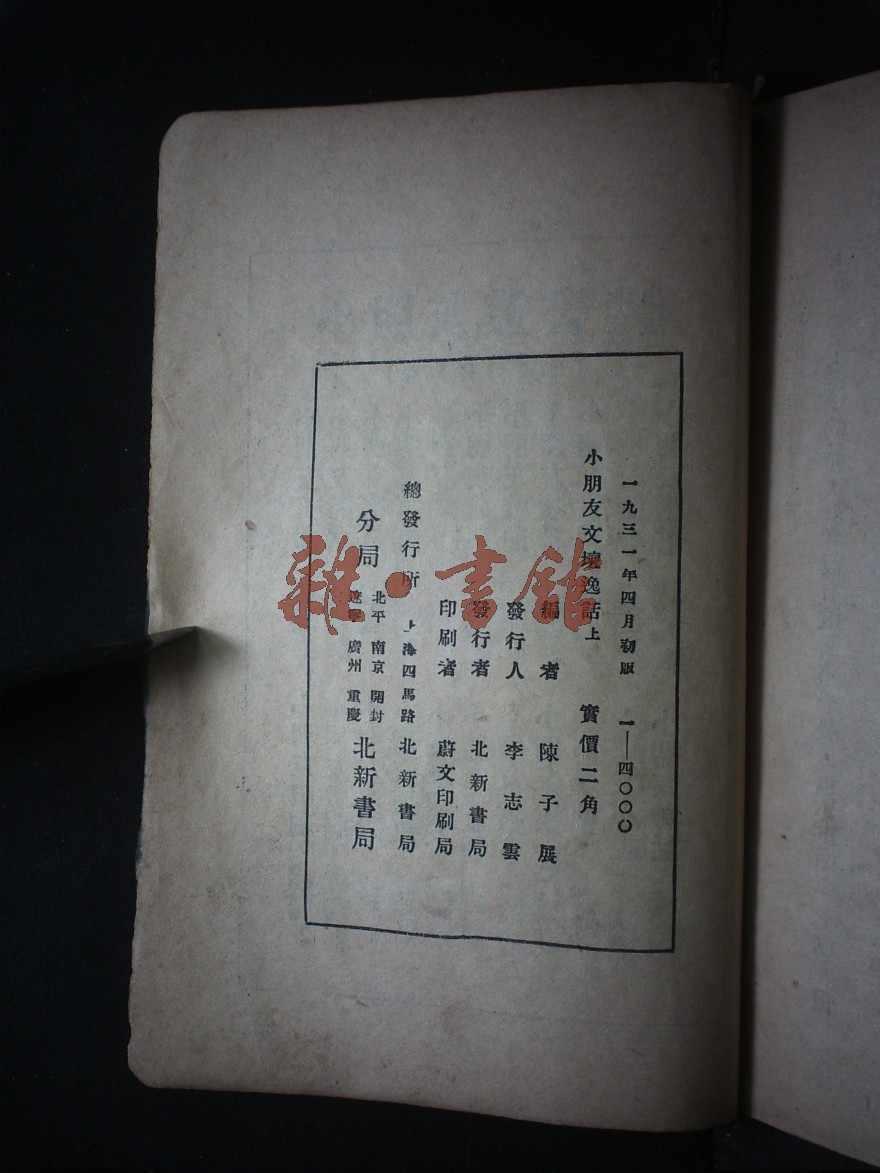 一九三一年四月初版 一—四〇〇〇
小朋友文壇逸話上 實價二角
編者 陳子展
發行人 李志雲
發行者 北新書局
印刷者 蔚文印刷局
總發行所 上海四馬路 北新書局
分局 北平 南京 開封 遼寧 廣州 重慶 北新書局
雜·書館